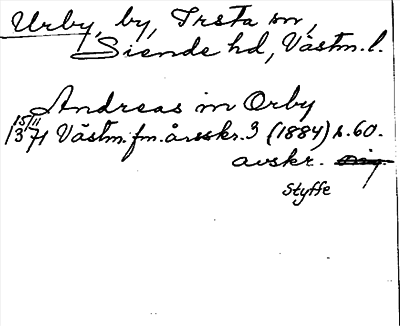 Urby, by, Irsta sn,
Siende hd, Västm. l.
Andreas in Orby
15/11 1371 Västm. fm. årsskr. 3 (1884) s. 60.
avskr. orig.
Styffe